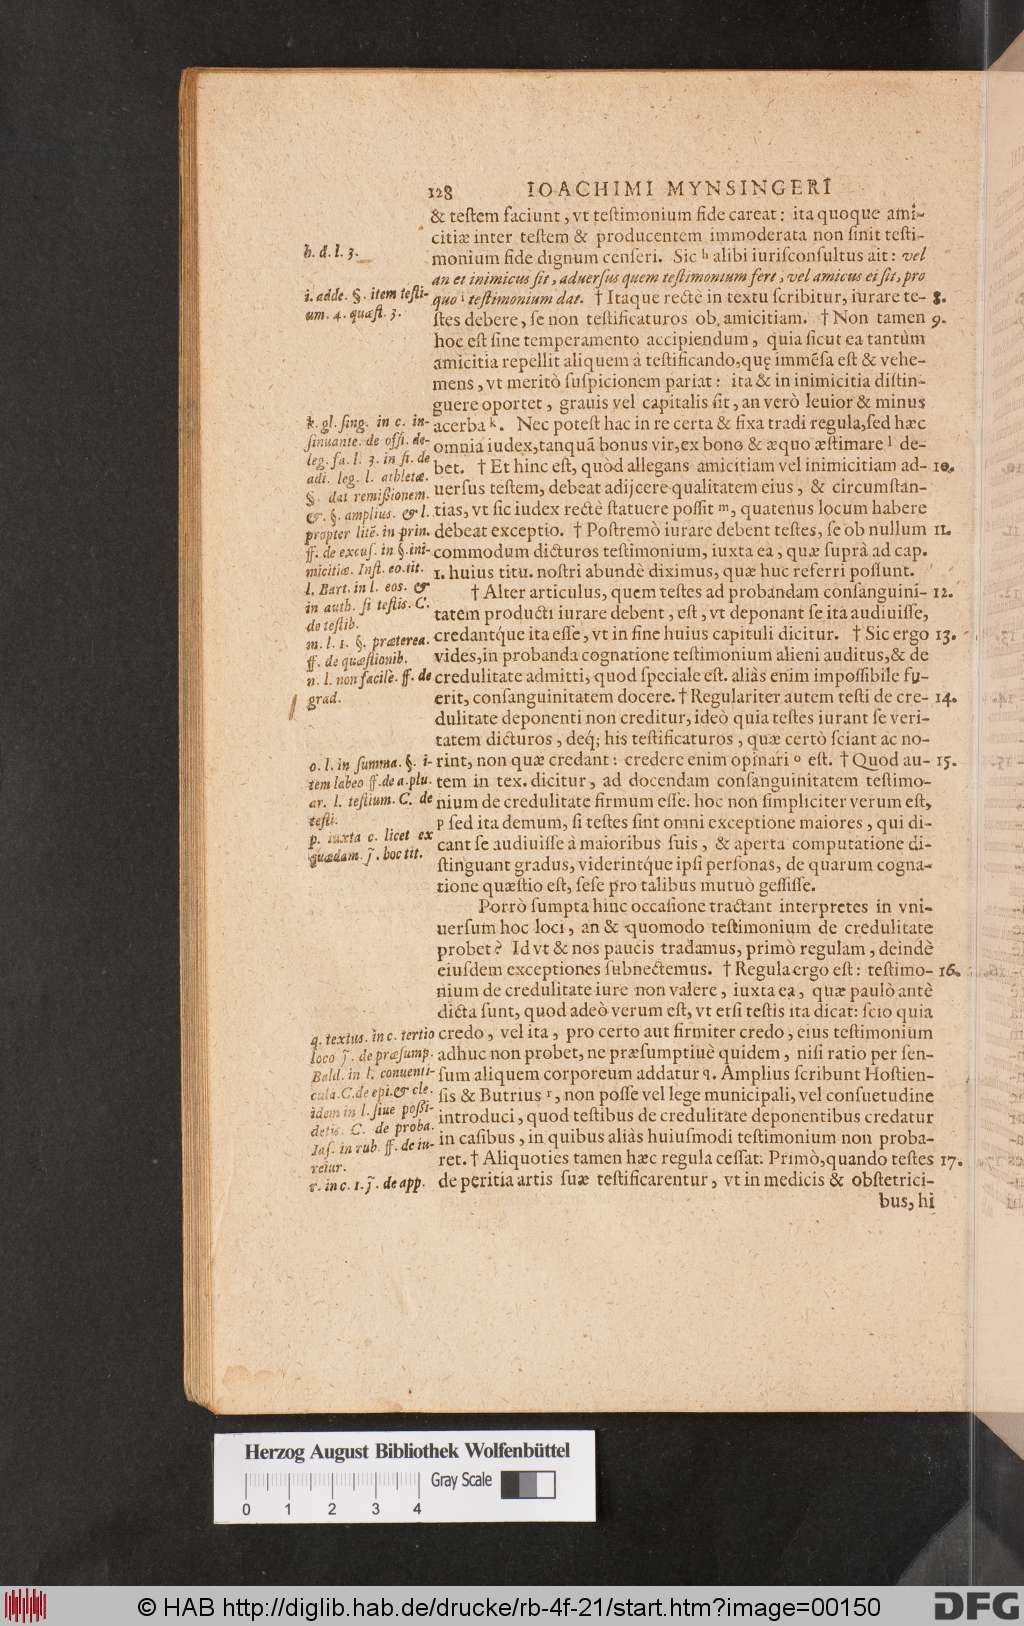 128 IOACHIMI MYNSINGERI
& teſtem faciunt, vt teſtimonium fide careat: ita quoque ami-
citiæ inter teſtem & producentem immoderata non ſinit teſti-
monium fide dignum cenſeri. Sic h alibi iuriſconſultus ait: vel
an et inimicus ſit, aduerſus quem teſtimonium fert, vel amicus ei ſit, pro
quo i teſtimonium dat. † Itaque rectè in textu ſcribitur, iurare te- 8.
ſtes debere, ſe non teſtificaturos ob amicitiam. † Non tamen 9.
hoc eſt ſine temperamento accipiendum, quia ſicut ea tantùm
amicitia repellit aliquem à teſtificando, quę immẽſa eſt & vehe-
mens, vt meritò ſuſpicionem pariat: ita & in inimicitia diſtin-
guere oportet, grauis vel capitalis ſit, an verò leuior & minus
acerba k. Nec poteſt hac in re certa & fixa tradi regula, ſed hæc
omnia iudex, tanquã bonus vir, ex bono & æquo æſtimare l de-
bet. † Et hinc eſt, quòd allegans amicitiam vel inimicitiam ad- 10.
uerſus teſtem, debeat adijcere qualitatem eius, & circumſtan-
tias, vt ſic iudex rectè ſtatuere poſſit m, quatenus locum habere
debeat exceptio. † Poſtremò iurare debent teſtes, ſe ob nullum 11.
commodum dicturos teſtimonium, iuxta ea, quæ ſuprà ad cap.
1. huius titu. noſtri abundè diximus, quæ huc referri poſſunt.
† Alter articulus, quem teſtes ad probandam conſanguini- 12.
tatem producti iurare debent, eſt, vt deponant ſe ita audiuiſſe,
credantq́ue ita eſſe, vt in fine huius capituli dicitur. † Sic ergo 13.
vides, in probanda cognatione teſtimonium alieni auditus, & de
credulitate admitti, quod ſpeciale eſt. aliàs enim impoſſibile fu-
erit, conſanguinitatem docere. † Regulariter autem teſti de cre- 14.
dulitate deponenti non creditur, ideò quia teſtes iurant ſe veri-
tatem dicturos, deq́; his teſtificaturos, quæ certò ſciant ac no-
rint, non quæ credant: credere enim opinari o eſt. † Quod au- 15.
tem in tex. dicitur, ad docendam conſanguinitatem teſtimo-
nium de credulitate firmum eſſe. hoc non ſimpliciter verum eſt,
p ſed ita demum, ſi teſtes ſint omni exceptione maiores, qui di-
cant ſe audiuiſſe à maioribus ſuis, & aperta computatione di-
ſtinguant gradus, viderintq́ue ipſi perſonas, de quarum cogna-
tione quæſtio eſt, ſeſe pro talibus mutuò geſſiſſe.
Porrò ſumpta hinc occaſione tractant interpretes in vni-
uerſum hoc loci, an & quomodo teſtimonium de credulitate
probet? Id vt & nos paucis tradamus, primò regulam, deindè
eiuſdem exceptiones ſubnectemus. † Regula ergo eſt: teſtimo- 16.
nium de credulitate iure non valere, iuxta ea, quæ paulò antè
dicta ſunt, quod adeò verum eſt, vt etſi teſtis ita dicat: ſcio quia
credo, vel ita, pro certo aut firmiter credo, eius teſtimonium
adhuc non probet, ne præſumptiuè quidem, niſi ratio per ſen-
ſum aliquem corporeum addatur q. Amplius ſcribunt Hoſtien-
ſis & Butrius r, non poſſe vel lege municipali, vel conſuetudine
introduci, quod teſtibus de credulitate deponentibus credatur
in caſibus, in quibus aliàs huiuſmodi teſtimonium non proba-
ret. † Aliquoties tamen hæc regula ceſſat. Primò, quando teſtes 17.
de peritia artis ſuæ teſtificarentur, vt in medicis & obſtetrici-
bus, hi
h. d. l. 3.
i. adde. §. item teſti-
um. 4. quæſt. 3.
k. gl. ſing. in c. in-
ſinuante. de offi. de-
leg. fa. l. 3. in fi. de
adi. leg. l. athletæ.
§. dat remißionem.
&. §. amplius. & l.
propter litẽ. in prin.
ff. de excuſ. in §. ini-
micitiæ. Inſt. eo. tit.
l. Bart. in l. eos. &
in auth. ſi teſtis. C.
de teſtib.
m. l. 1. §. præterea.
ff. de quæſtionib.
n. l. non facile. ff. de
grad.
o. l. in ſumma. §. i-
tem labeo ff. de a. plu.
ar. l. teſtium. C. de
teſti.
p. iuxta c. licet ex
quædam. j̃. hoc tit.
q. textus. in c. tertio
loco j̃. de præſump.
Bald. in l. conuenti-
cula. C. de epi. & cle.
idem in l. ſiue poßi-
detis. C. de proba.
Iaſ. in rub. ff. de iu-
reiur.
r. in c. 1. j̃. de app.
Herzog August Bibliothek Wolfenbüttel
Gray Scale
0 1 2 3 4
© HAB http://diglib.hab.de/drucke/rb-4f-21/start.htm?image=00150
DFG